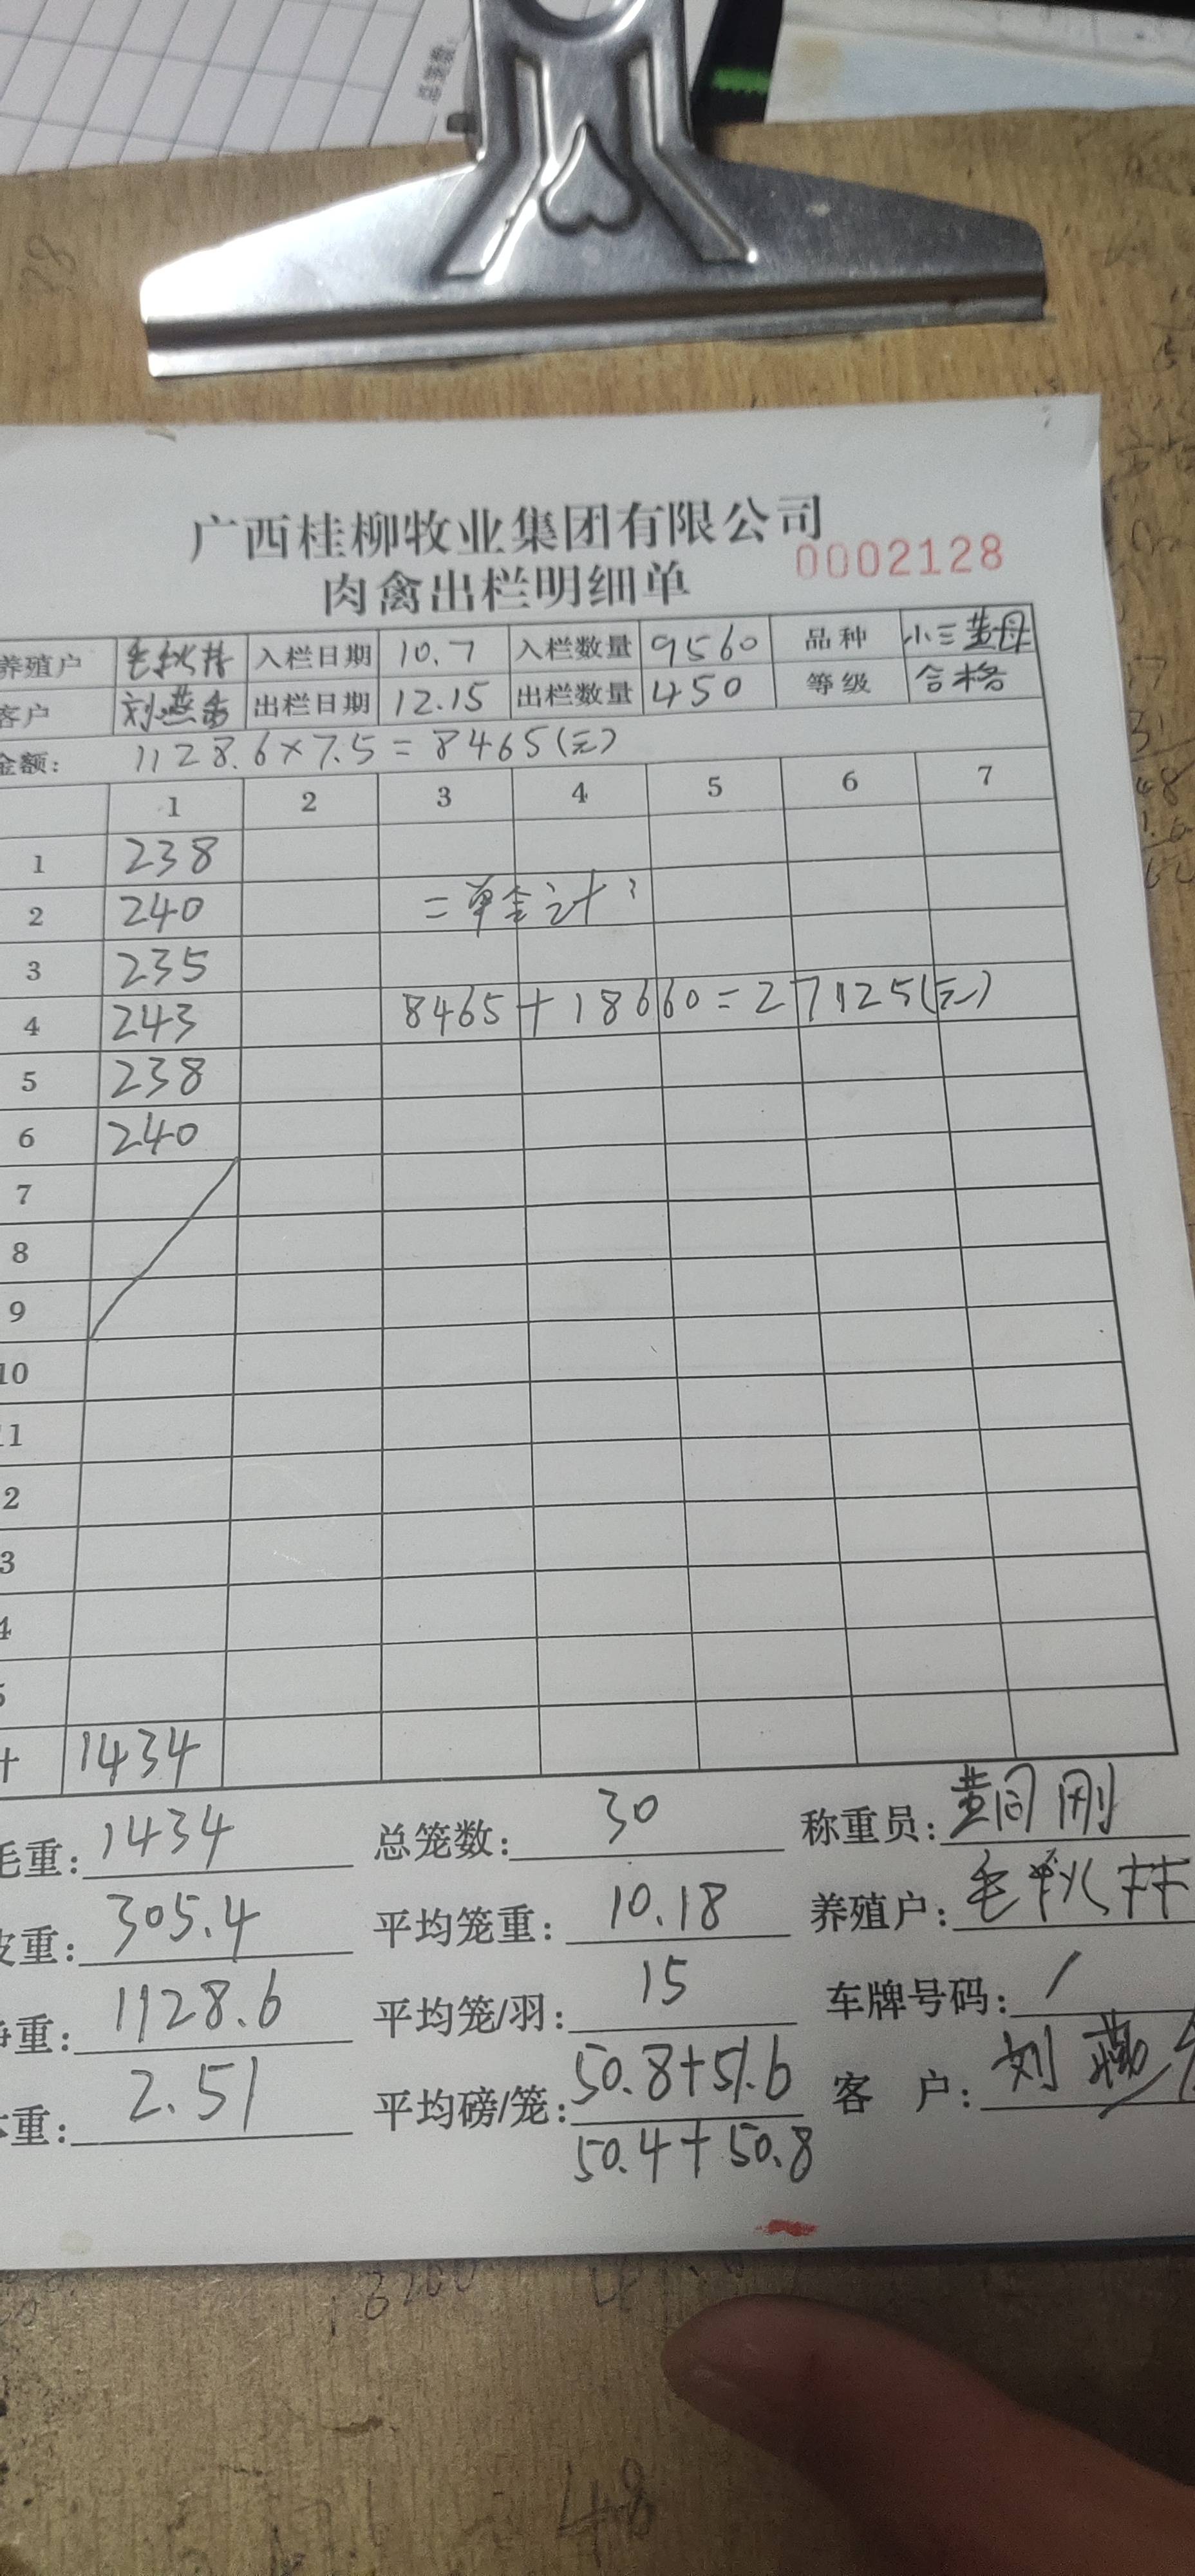 广西桂柳牧业集团有限公司
0002128
肉禽出栏明细单
养殖户 毛秋林 入栏日期 10.7 入栏数量 9560 品种 小三黄母
客户 刘燕 出栏日期 12.15 出栏数量 450 等级 合格
金额: 1128.6×7.5=8465(元)
1 2 3 4 5 6 7
1 238
2 240 二单合计:
3 235
4 243 8465+18660=27125(元)
5 238
6 240
7
8
9
10
1
2
3
4
5
计 1434
毛重: 1434 总笼数: 30 称重员: 黄同刚
皮重: 305.4 平均笼重: 10.18 养殖户: 毛秋林
净重: 1128.6 平均笼/羽: 15 车牌号码: /
体重: 2.51 平均磅/笼: 50.8+51.6 客 户: 刘燕
50.4+50.8
48